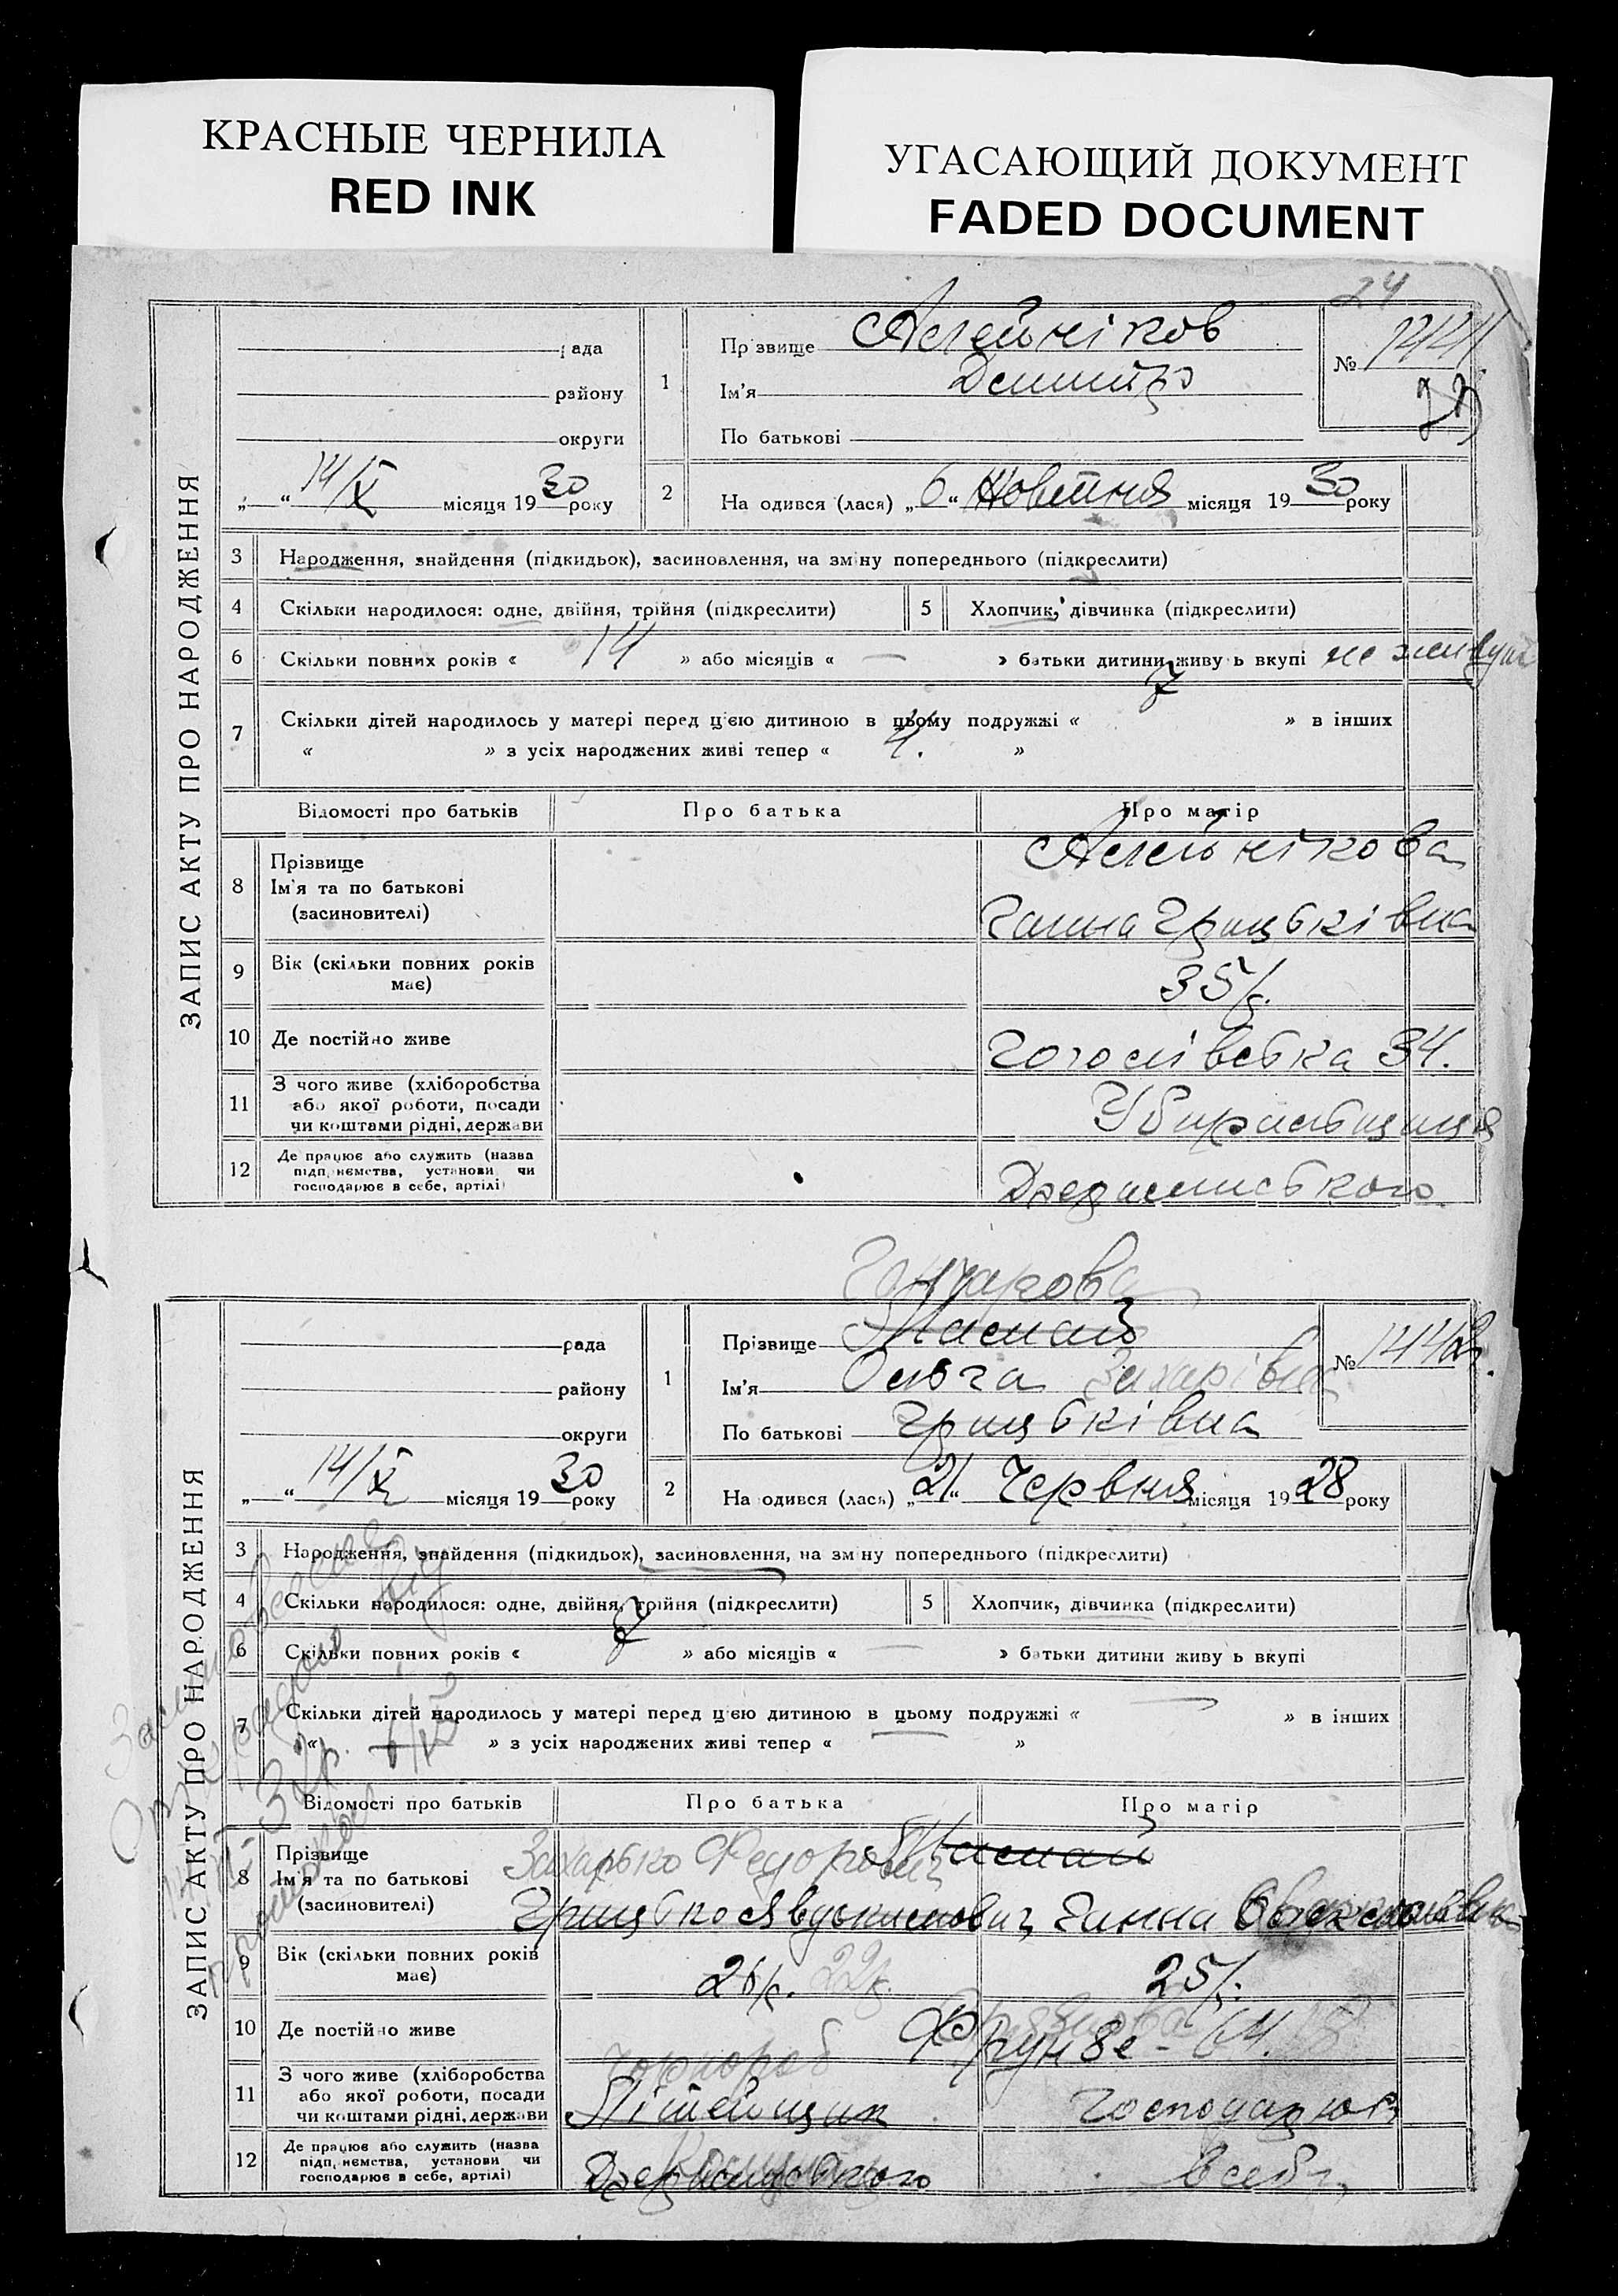 КРАСНЫЕ ЧЕРНИЛА
RED INK
УГАСАЮЩИЙ ДОКУМЕНТ
FADED DOCUMENT
24
ЗАПИС АКТУ ПРО НАРОДЖЕННЯ
рада
району
округи
14/X місяця 1930 року
1 Прізвище Алейніков
Ім'я Дмитро
По батькові
№ 1441
2 Народився (лася) „6“ Жовтня місяця 1930 року
3 Народження, знайдення (підкидьок), засиновлення, на зміну попереднього (підкреслити)
4 Скільки народилося: одне, двійня, трійня (підкреслити) 5 Хлопчик, дівчинка (підкреслити)
6 Скільки повних років « 14 » або місяців « — » батьки дитини живуть вкупі не живуть
7 Скільки дітей народилось у матері перед цією дитиною в цьому подружжі « 7 » в інших
« » з усіх народжених живі тепер « 4. »
Відомості про батьків Про батька Про матір
8 Прізвище Ім'я та по батькові (засновителі) Алейнікова
Ганна Грицьківна
9 Вік (скільки повних років має) 35/р.
10 Де постійно живе Гоголівська 34.
11 З чого живе (хліборобства або якої роботи, посади чи коштами рідні, держави Убиральщиця
12 Де працює або служить (назва підприємства, установи чи господарює в себе, артілі) Дзержинського
ЗАПИС АКТУ ПРО НАРОДЖЕННЯ
Гончарова
рада
району
округи
14/X місяця 1930 року
1 Прізвище
Ім'я Ольга Захарівна
По батькові Грицьківна
№ 1442
2 Народився (лась) „21“ Червня місяця 1928 року
3 Народження, знайдення (підкидьок), засиновлення, на зміну попереднього (підкреслити)
4 Скільки народилося: одне, двійня, трійня (підкреслити) 5 Хлопчик, дівчинка (підкреслити)
6 Скільки повних років « 2 » або місяців « — » батьки дитини живуть вкупі
7 Скільки дітей народилось у матері перед цією дитиною в цьому подружжі « — » в інших
« » з усіх народжених живі тепер « — »
Відомості про батьків Про батька Про матір
8 Прізвище Ім'я та по батькові (засиновителі) Захарько Федорович
Грицько Явдокимович Ганна
9 Вік (скільки повних років має) 26/р. 22р. 25/р.
10 Де постійно живе Фрунзе - 64.
11 З чого живе (хліборобства або якої роботи, посади чи коштами рідні, держави Чорнороб Літейщик Господарює
12 Де працює або служить (назва підприємства, установи чи господарює в себе, артілі) Дзержинського в себе